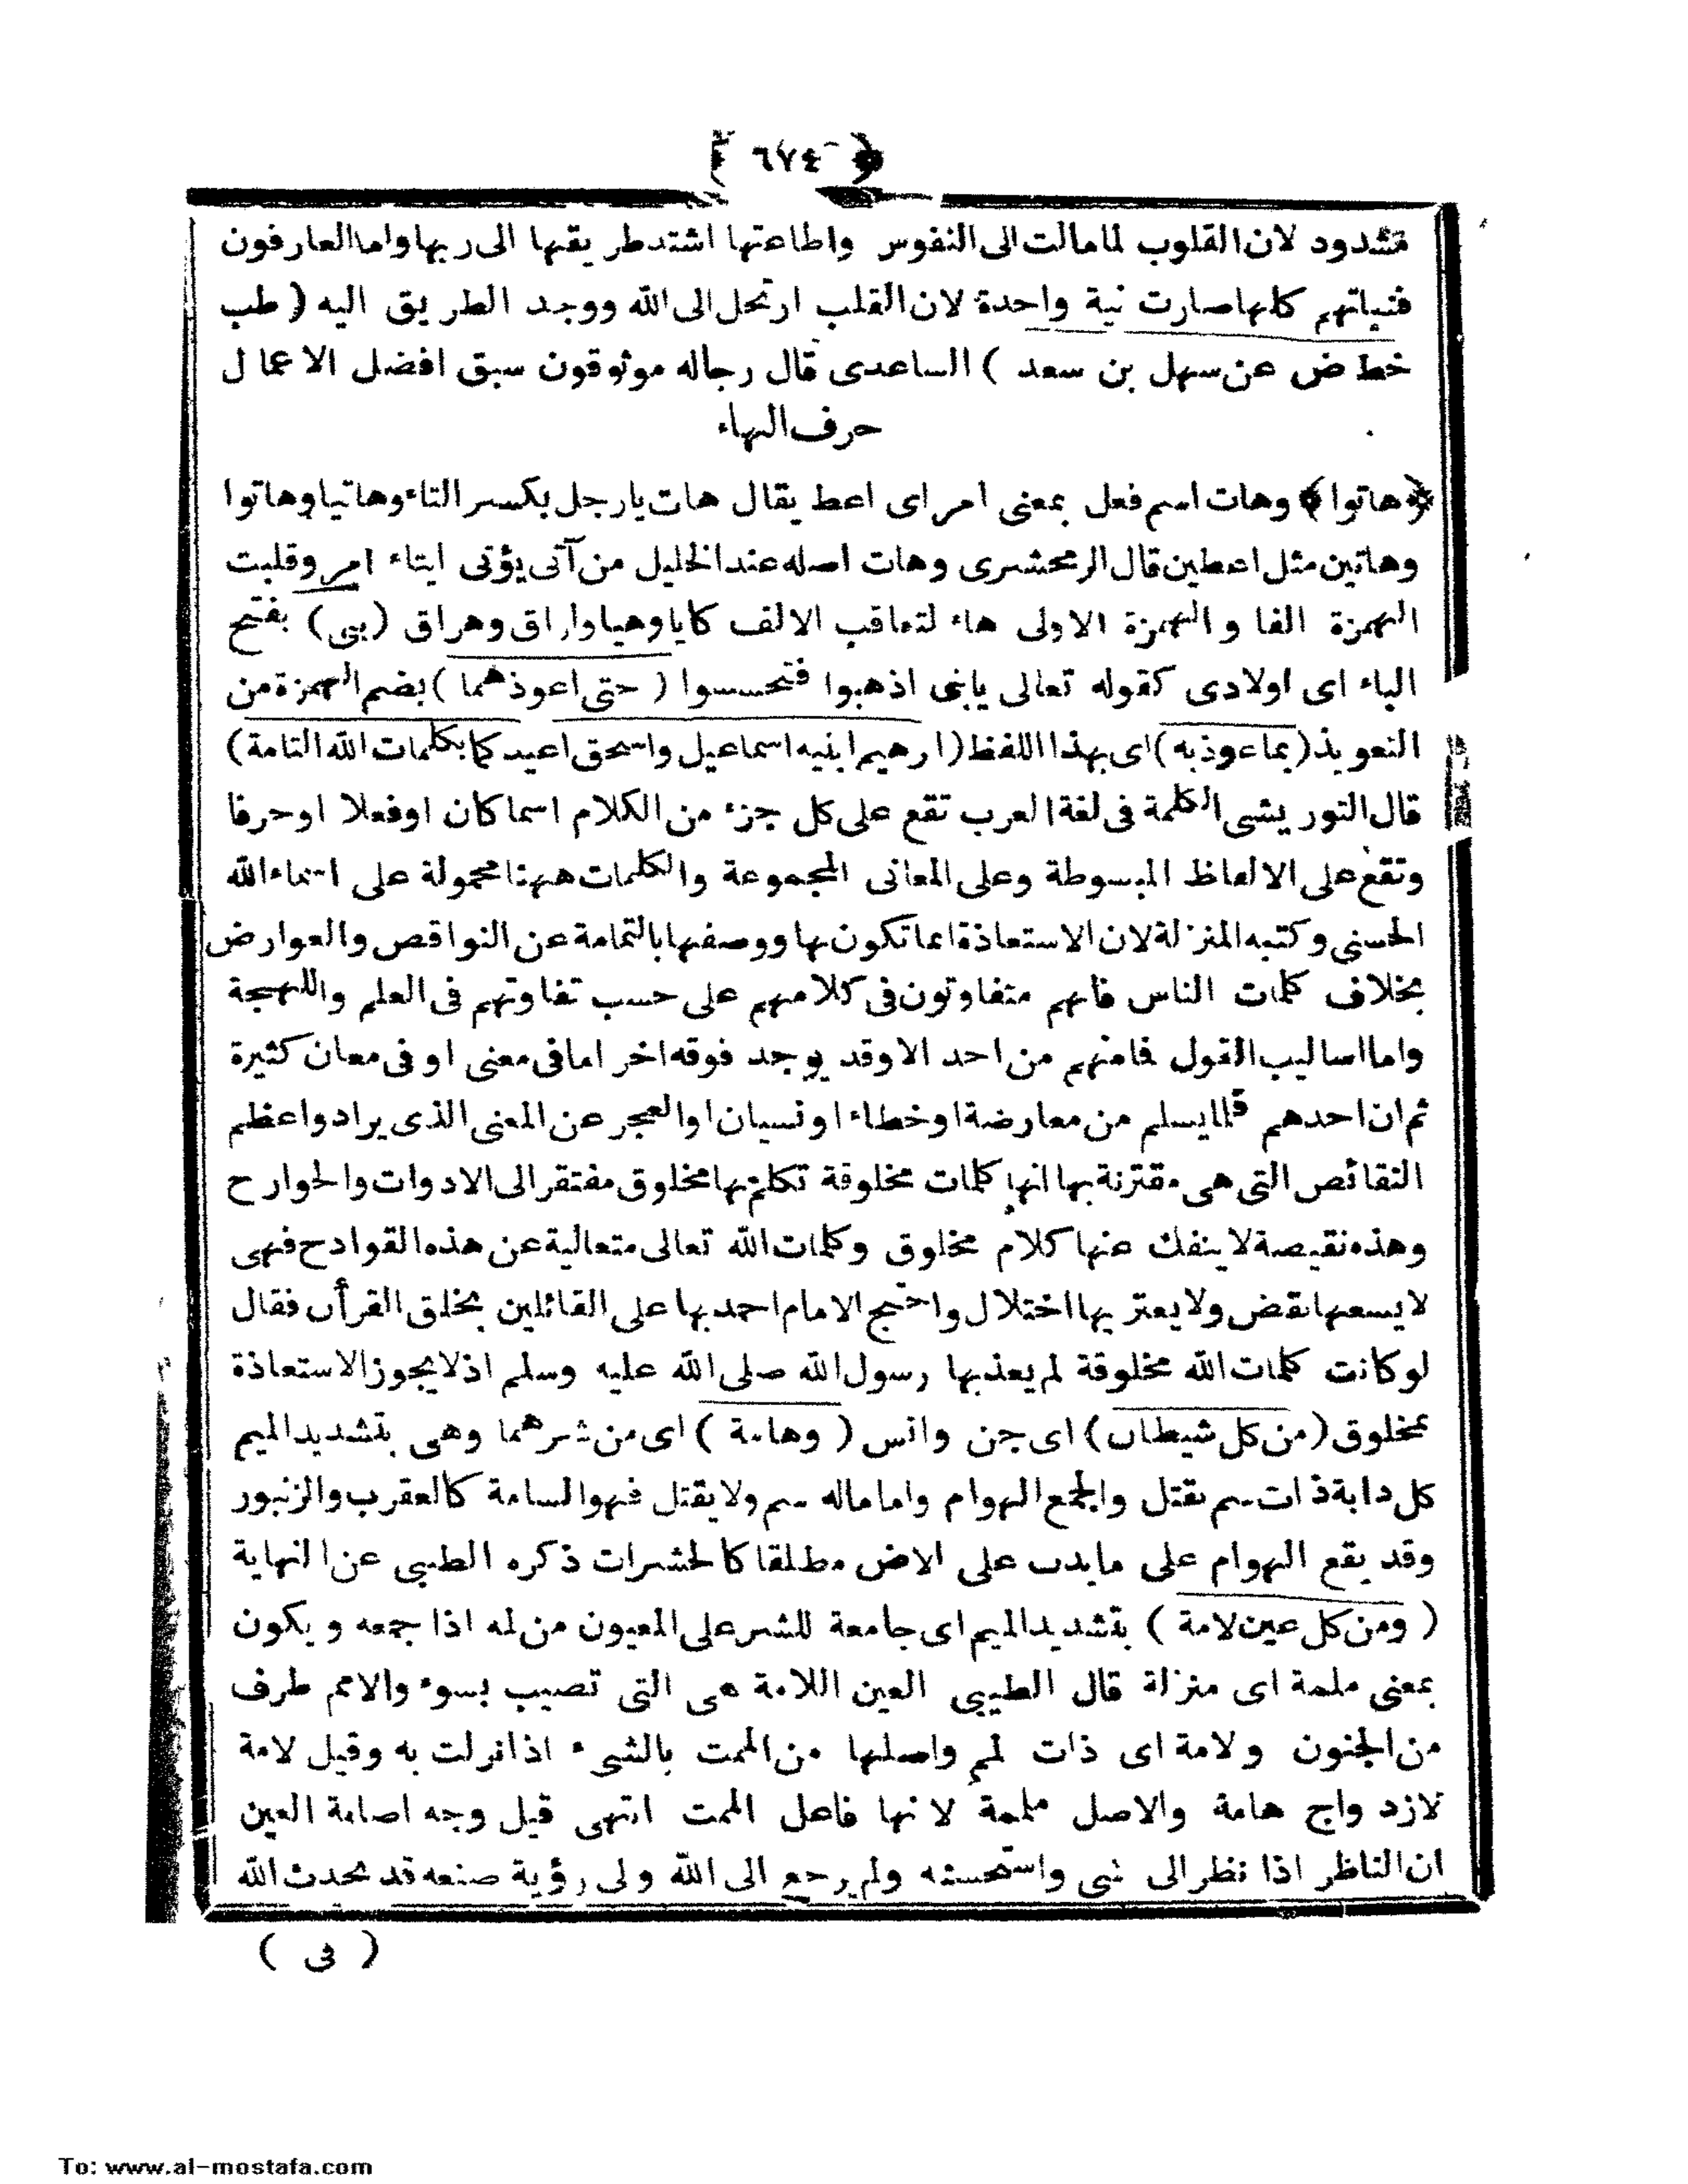 ﴿ ٦٧٤ ﴾
مشدود لان القلوب لما مالت الى النفوس واطاعتها اشتد طريقها الى ربها واما العارفون
فنياتهم كلها صارت نية واحدة لان القلب ارتحل الى الله ووجد الطريق اليه ( طب
خط ض عن سهل بن سعد ) الساعدى قال رجاله موثوقون سبق افضل الاعمال
حرف الهاء
﴿ هاتوا ﴾ وهات اسم فعل بمعنى امر اى اعط يقال هات يا رجل بكسر التاء وهاتيا وهاتوا
وهاتين مثل اعطين قال الزمحشرى وهات اصله عند الخليل من آتى يؤتى ايتاء امر وقلبت
الهمزة الفا والهمزة الاولى هاء لتعاقب الالف كايا وهيا واراق وهراق (بنى) بفتح
الباء اى اولادى كقوله تعالى يا بنى اذهبوا فتحسسوا ( حتى اعوذهما ) بضم الهمزة من
التعويذ ( بما عوذ به ) اى بهذا اللفظ ( ارهيم ابنيه اسماعيل واسحق اعيد كما بكلمات الله التامة )
قال التوريشى الكلمة فى لغة العرب تقع على كل جزء من الكلام اسما كان او فعلا او حرفا
وتقع على الالفاظ المبسوطة وعلى المعانى المجموعة والكلمات ههنا محمولة على اسماء الله
الحسنى وكتبه المنزلة لان الاستعاذة انما تكون بها ووصفها بالتمامة عن النواقص والعوارض
بخلاف كلمات الناس فانهم متفاوتون فى كلامهم على حسب تفاوتهم فى العلم واللهجة
واما اساليب القول فما منهم من احد الا وقد يوجد فوقه اخر اما فى معنى او فى معان كثيرة
ثم ان احدهم قلما يسلم من معارضة او خطاء او نسيان او العجز عن المعنى الذى يراد واعظم
النقائص التى هى مقترنة بها انها كلمات مخلوقة تكلم بها مخلوق مفتقر الى الادوات والجوارح
وهذه نقيصة لا ينفك عنها كلام مخلوق وكلمات الله تعالى متعالية عن هذه القوادح فهى
لا يسعها نقض ولا يعتريها اختلال واحتج الامام احمد بها على القائلين بخلق القرأن فقال
لو كانت كلمات الله مخلوقة لم يعذ بها رسول الله صلى الله عليه وسلم اذ لا يجوز الاستعاذة
بمخلوق ( من كل شيطان ) اى جن وانس ( وهامة ) اى من شرهما وهى بتشديد الميم
كل دابة ذات سم يقتل والجمع الهوام واما ماله سم ولا يقتل فهو السامة كالعقرب والزنبور
وقد يقع الهوام على ما يدب على الاض مطلقا كالحشرات ذكره الطيبى عن النهاية
( ومن كل عين لامة ) بتشديد الميم اى جامعة للشر على المعيون من لمه اذا جمعه ويكون
بمعنى ملمة اى منزلة قال الطيبى العين اللامة هى التى تصيب بسوء والامم طرف
من الجنون ولامة اى ذات لمم واصلها من الممت بالشىء اذا نزلت به وقيل لامة
لازدواج هامة والاصل ملمة لانها فاعل الممت انتهى قيل وجه اصابة العين
ان الناظر اذا نظر الى شىء واستحسنه ولم يرجع الى الله ولى رؤية صنعه قد يحدث الله
( فى )
To: www.al-mostafa.com